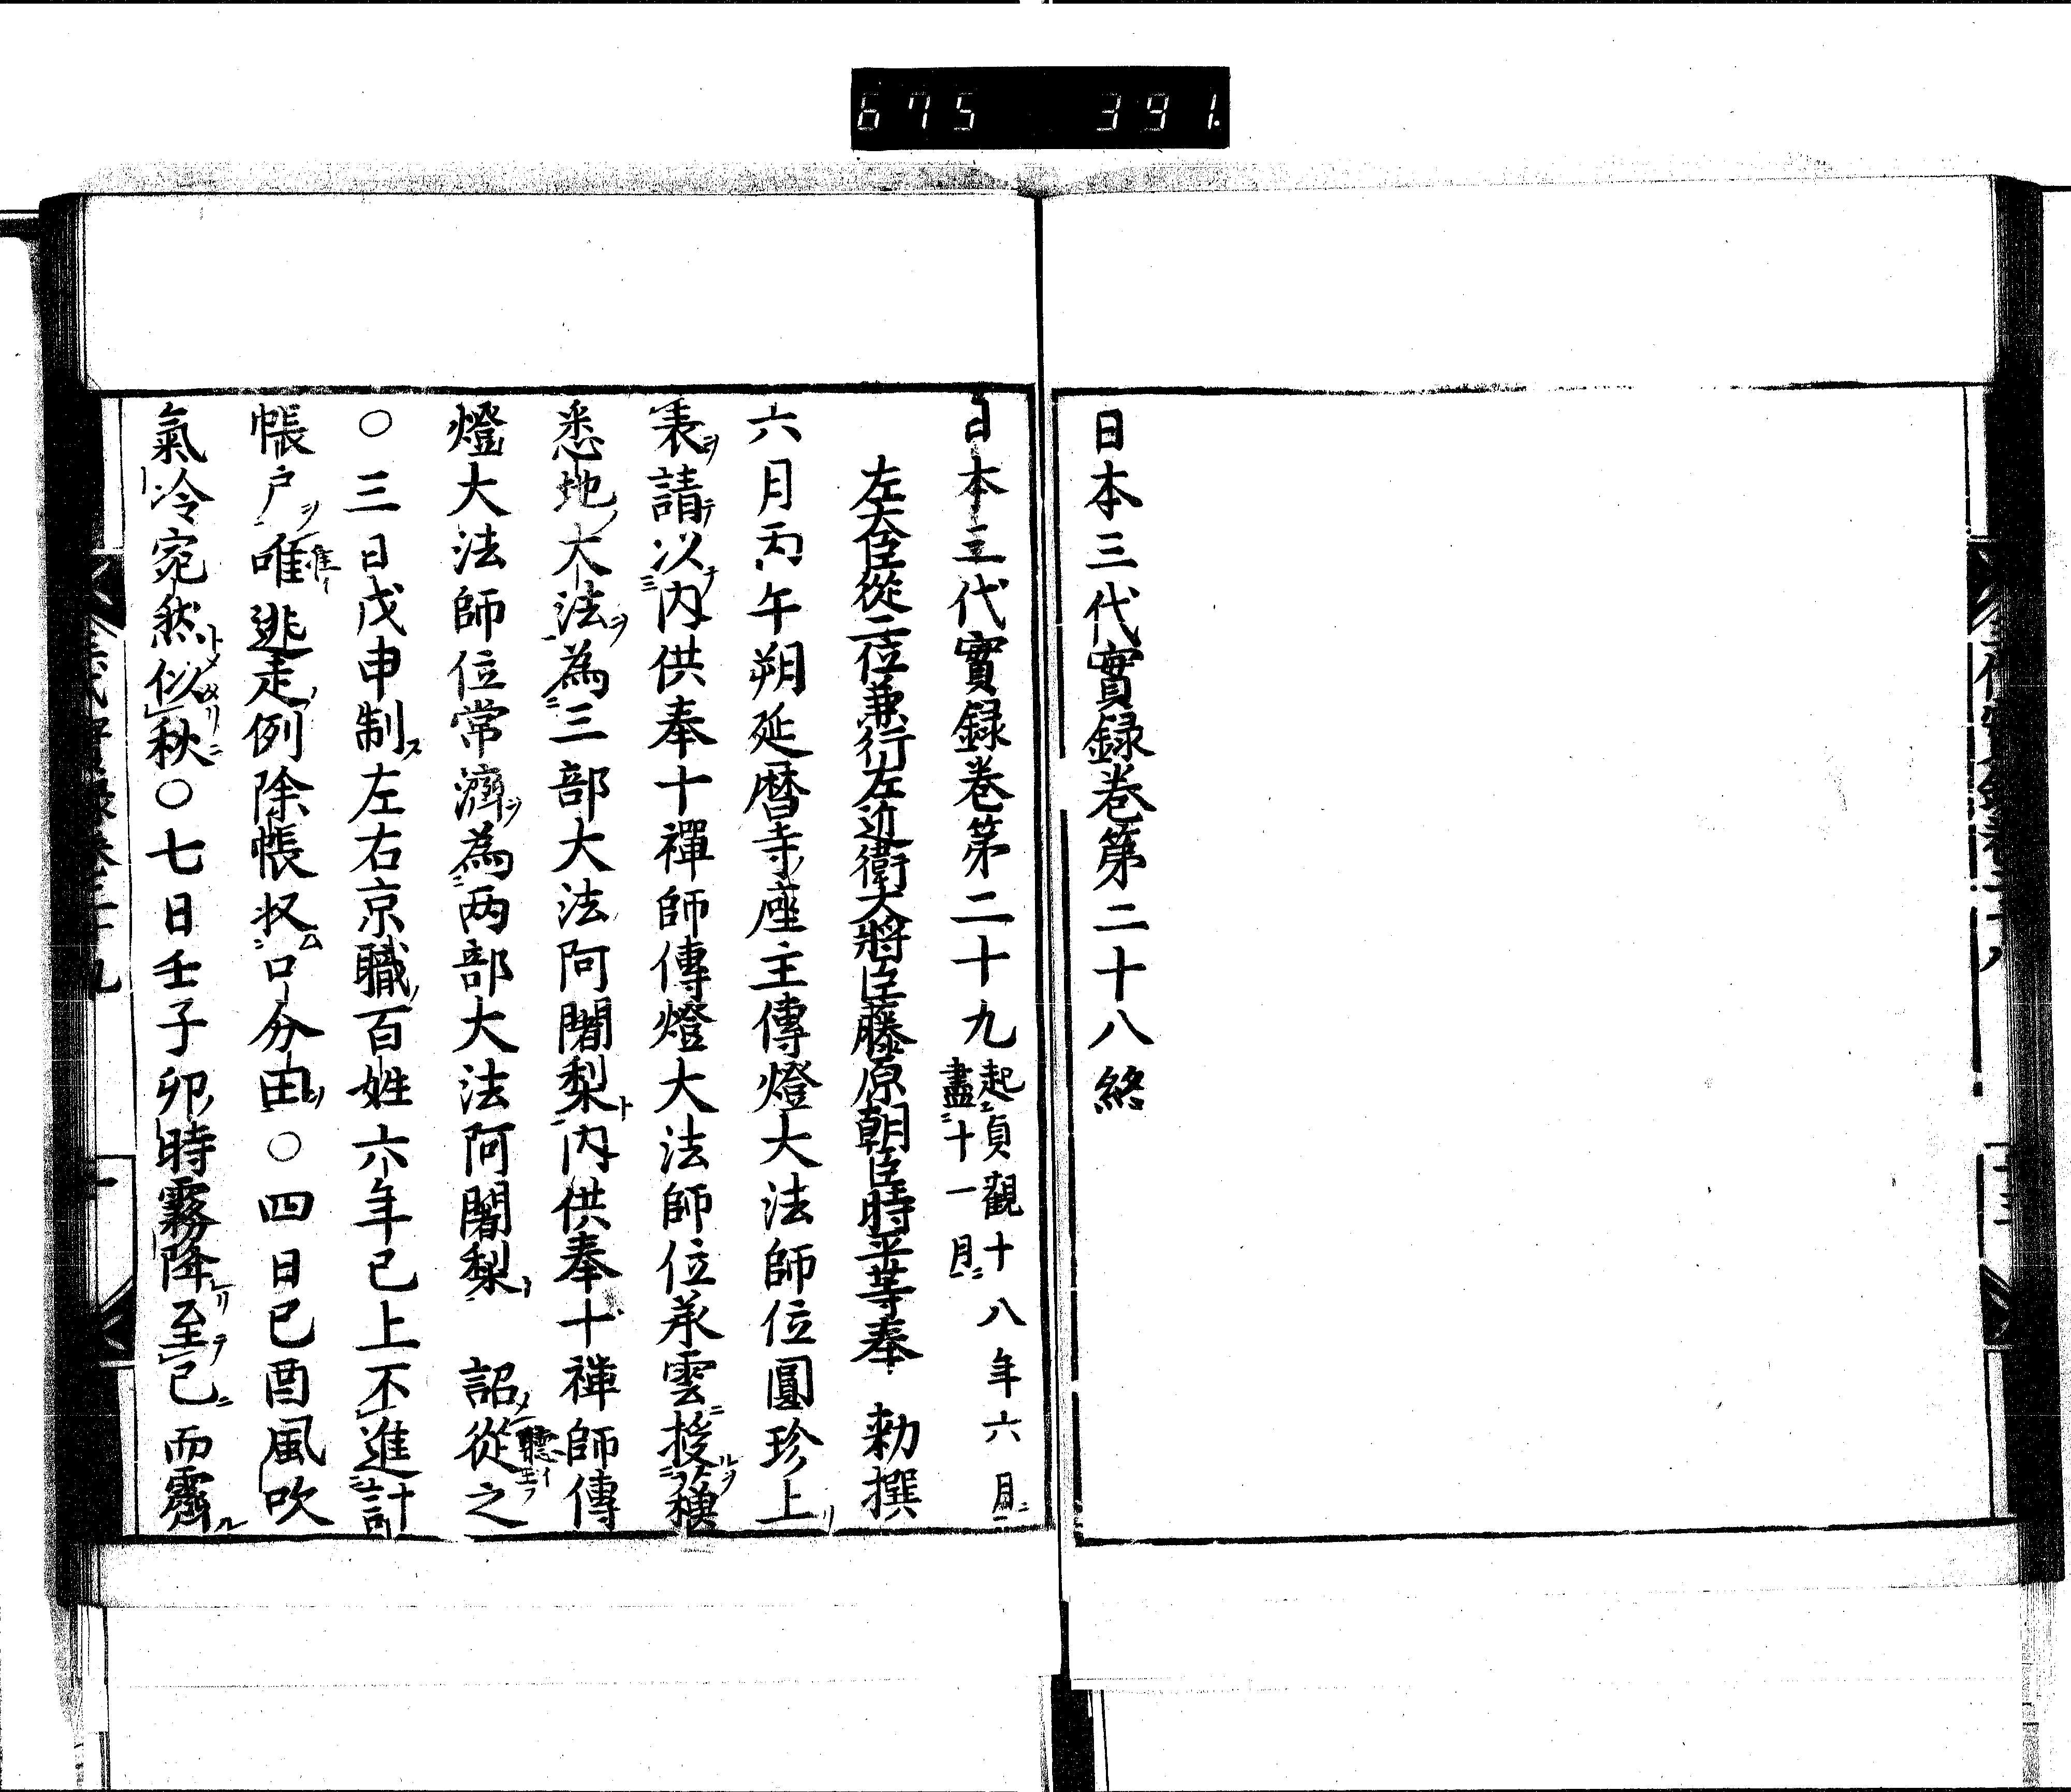 675 391.
日本三代實録巻第二十八終
日本三代實録巻第二十九 起貞觀十八年六月
盡十一月
左大臣從二位兼行左近衛大將臣藤原朝臣時平等奉 勅撰
六月丙午朔延暦寺座主傳燈大法師位圓珍上
表請以内供奉十禪師傳燈大法師位承雲授蘓
悉地大法為三部大法阿闍梨内供奉十禅師傳
燈大法師位常濟為两部大法阿闍梨 詔從之
○三日戊申制左右京職百姓六年已上不進計
帳戸唯逃走例除帳収口分田○四日已酉風吹
氣冷宛然似秋○七日壬子卯時霧降至已而霽